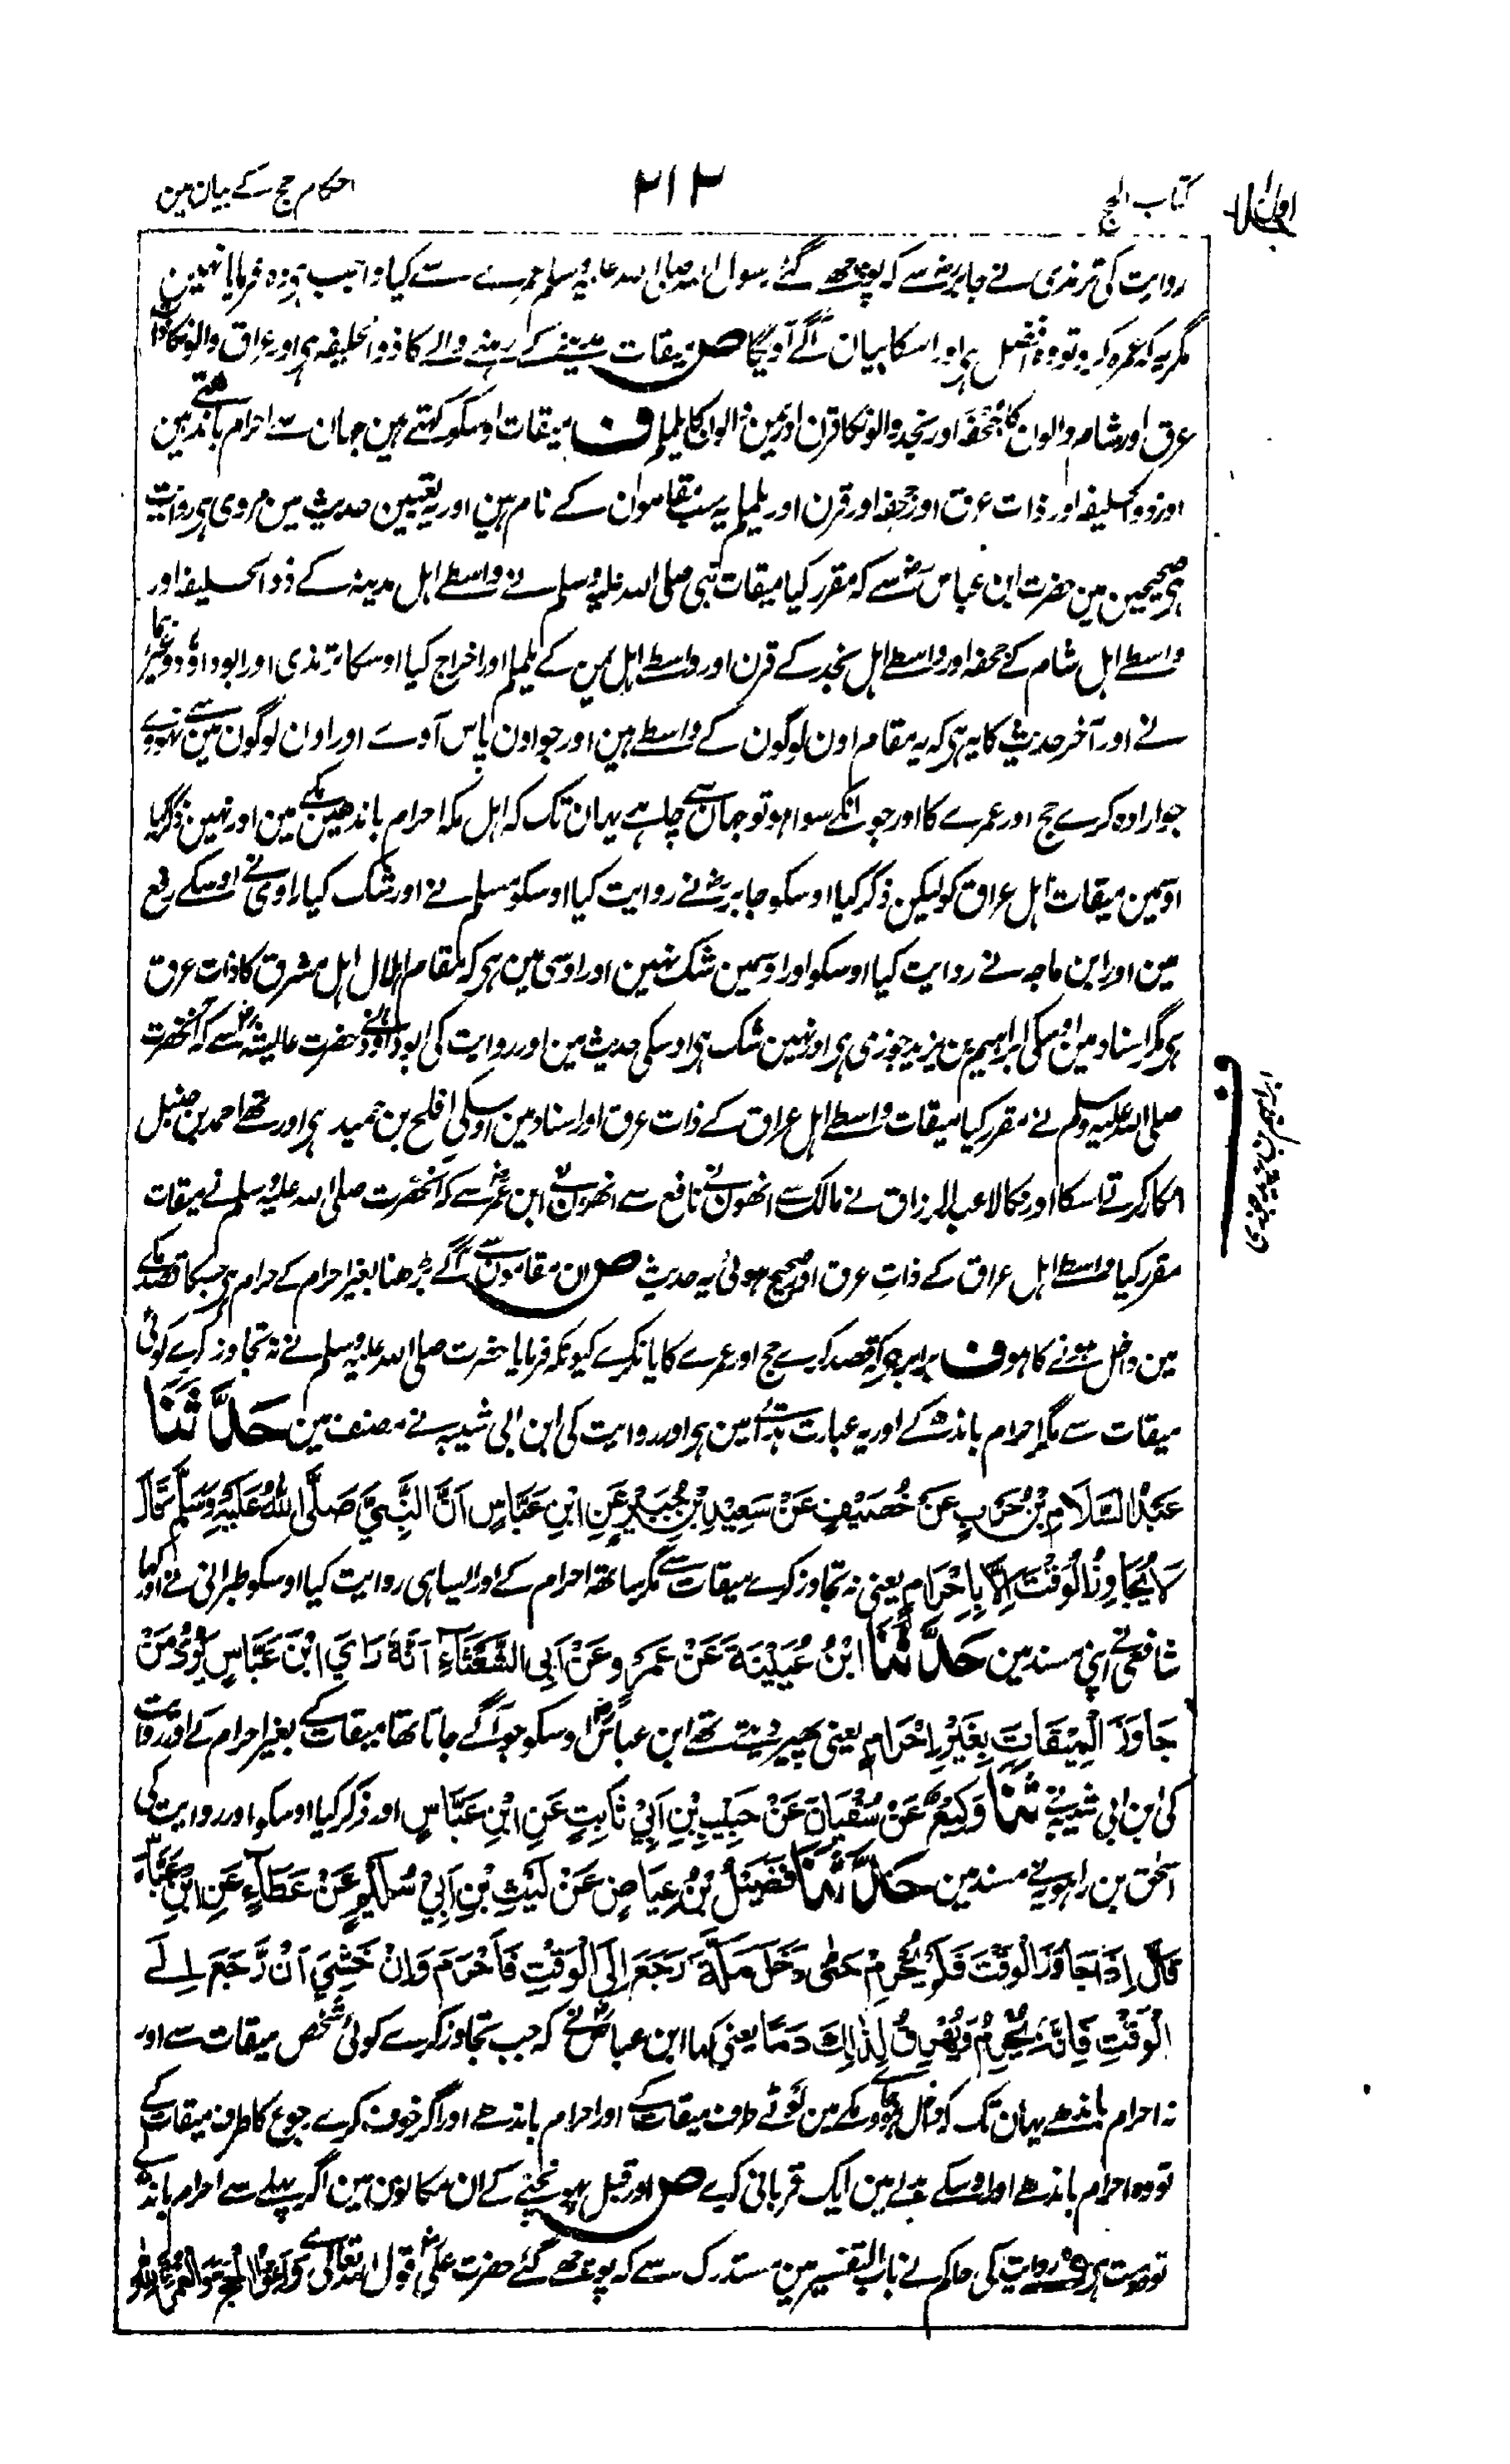 جلد اول
کتاب الحج
۲۱۲
احکام حج کے بیان مین
روایت کی ترمذی نے جابر رض سے کہ پوچھے گئے رسول اللہ صلی اللہ علیہ وسلم عمرے سے کیا واجب ہی وہ فرمایا نہین
مگر یہ کہ عمرہ کرو تو وہ افضل ہی اور اسکا بیان آگے آویگا ص میقات مدینے کے رہنے والے کا ذوالحلیفہ ہی اور عراق والونکا ذات
عرق اور شام والون کا جُحفَہ اور نجد والونکا قرن اور یمن والون کا یلملم ف میقات اوسکو کہتے ہین جہان سے احرام باندھتے ہین
اور ذوالحلیفہ اور ذات عرق اور جحفہ اور قرن اور یلملم یہ سب مقامون کے نام ہین اور یہ تعیین حدیث مین مروی ہی روایت
ہی صحیحین مین حضرت ابن عباس رض سے کہ مقرر کیا میقات نبی صلی اللہ علیہ وسلم نے واسطے اہل مدینہ کے ذوالحلیفہ اور
واسطے اہل شام کے جحفہ اور واسطے اہل نجد کے قرن اور واسطے اہل یمن کے یلملم اور اخراج کیا اوسکا ترمذی اور ابوداود وغیرہما
نے اور آخر حدیث کا یہ ہی کہ یہ مقام اون لوگون کے واسطے ہین اور جو اون پاس آوے اور اون لوگون مین سے نہووے
جو ارادہ کرے حج اور عمرے کا اور جو انکے سوا ہو تو جہان سے چاہے یہان تک کہ اہل مکہ احرام باندھین مکے مین اور نہین ذکر کیا
اوسمین میقات اہل عراق کو لیکن ذکر کیا اوسکو جابر رض نے روایت کیا اوسکو مسلم نے اور شک کیا راوی نے اوسکے رفع
مین اور ابن ماجہ نے روایت کیا اوسکو اور اوسمین شک نہین اور اوسی مین ہی کہ مقام اہلال اہل مشرق کا ذات عرق
ہی مگر اسناد مین اوسکی ابراہیم بن یزید جوزی ہی اور نہین شک ہی اوسکی حدیث مین اور روایت کی ابوداود نے حضرت عایشہ رض سے کہ آنحضرت
صلی اللہ علیہ وسلم نے مقرر کیا میقات واسطے اہل عراق کے ذات عرق اور اسناد مین اوسکی افلح بن حمید ہی اور تھے احمد بن حنبل
انکار کرتے اسکا اور نکالا عبدالرزاق نے مالک سے انھون نے نافع سے انھون نے ابن عمر رض سے کہ آنحضرت صلی اللہ علیہ وسلم نے میقات
مقرر کیا واسطے اہل عراق کے ذات عرق اور صحیح ہوئی یہ حدیث ص ان مقامون سے آگے بڑھنا بغیر احرام کے حرام ہی جسکا قصد مکے
مین داخل ہونے کا ہو ف برابر ہی کہ قصد کرے حج اور عمرے کا یا نکرے کیونکہ فرمایا حضرت صلی اللہ علیہ وسلم نے نہ تجاوز کرے کوئی
میقات سے مگر احرام باندھ کے اور یہ عبارت ہدایے مین ہی اور روایت کی ابن ابی شیبہ نے مصنف مین حَدَّثَنَا
عَبْدُ السَّلَامِ بْنُ حَرْبٍ عَنْ خُصَيْفٍ عَنْ سَعِيْدِ بْنِ جُبَيْرٍ عَنِ ابْنِ عَبَّاسٍ اَنَّ النَّبِيَّ صَلَّى اللهُ عَلَيْهِ وَسَلَّمَ قَالَ
لَا يُجَاوِزُ الْوَقْتَ اِلَّا بِاِحْرَامٍ یعنی نہ تجاوز کرے میقات سے مگر ساتھ احرام کے اور ایسا ہی روایت کیا اوسکو طبرانی نے اور کہا
شافعی نے اپنی مسند مین حَدَّثَنَا ابْنُ عُيَيْنَةَ عَنْ عَمْرٍو عَنْ اَبِى الشَّعْثَاءِ اَنَّهٗ رَاَي ابْنَ عَبَّاسٍ يَرُدُّ مَنْ
جَاوَزَ الْمِيْقَاتَ بِغَيْرِ اِحْرَامٍ یعنی پھیر دیتے تھے ابن عباس رض اوسکو جو آگے جاتا تھا میقات کے بغیر احرام کے اور روایت
کی ابن ابی شیبہ نے ثَنَا وَكِيْعٌ عَنْ سُفْيَانَ عَنْ حَبِيْبِ بْنِ اَبِيْ ثَابِتٍ عَنِ ابْنِ عَبَّاسٍ اور ذکر کیا اوسکو اور روایت کی
اسحٰق بن راہویہ نے مسند مین حَدَّثَنَا فُضَيْلُ بْنُ عِيَاضٍ عَنْ لَيْثِ بْنِ اَبِيْ سُلَيْمٍ عَنْ عَطَاءٍ عَنِ ابْنِ عَبَّاسٍ
قَالَ اِذَا جَاوَزَ الْوَقْتَ فَلَمْ يُحْرِمْ حَتّٰى دَخَلَ مَكَّةَ رَجَعَ اِلَى الْوَقْتِ فَاَحْرَمَ وَاِنْ خَشِيَ اَنْ رَّجَعَ اِلَى
الْوَقْتِ فَاِنَّهٗ يُحْرِمُ وَيُهْرِقُ لِذٰلِكَ دَمًا یعنی کہا ابن عباس رض نے کہ جب تجاوز کرے کوئی شخص میقات سے اور
نہ احرام باندھے یہان تک کہ داخل ہووے مکے مین لوٹے طرف میقات کے اور احرام باندھے اور اگر خوف کرے رجوع کا طرف میقات کے
تو وہ احرام باندھے اور اوسکے بدلے مین ایک قربانی کرے ص اور قبل پہونچنے کے ان مکانون مین اگر پہلے سے احرام باندھ
تو درست ہی ف روایت کی حاکم نے باب التفسیر مین مستدرک سے کہ پوچھے گئے حضرت علی رض قول اللہ تعالی سے وَاَتِمُّوا الْحَجَّ وَالْعُمْرَةَ لِلّٰهِ